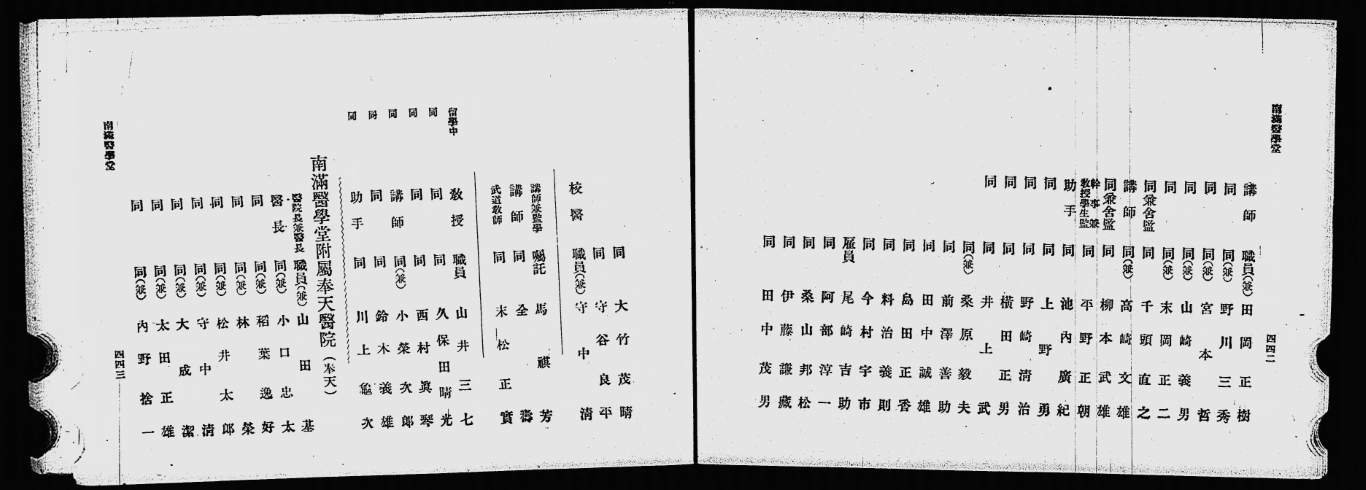 南滿醫學堂
四四二
講師 職員(兼) 田岡正樹
同 同(兼) 野川三秀
同 同(兼) 宮本哲
同 同(兼) 山崎義男
同 同(兼) 末岡正二
同兼舍監 同 千頭直之
講師 同(兼) 高崎文雄
同兼舍監 同 柳本武雄
幹事兼教授學生監 同 平野正朝
助手 同 池内廣紀
同 同 上野勇
同 同 野崎清治
同 同 橫田正男
同 同 井上武
同(兼) 桑原毅夫
同 前澤善助
同 田中誠雄
同 島田正香
同 料治義則
同 今村宇市
雇員 尾崎吉助
同 阿部淳一
同 桑山邦松
同 伊藤謙藏
同 田中茂男
同 大竹茂晴
同 守谷良平
校醫 職員(兼) 守中清
講師兼監學 囑託 馬祺芳
講師 同 全壽
武道教師 同 末松正實
留學中 教授 職員 山井三七
同 同 同 久保田晴光
同 同 同 西村眞琴
同 講師 同(兼) 小榮次郎
同 同 同 鈴木義雄
同 助手 同 川上龜次
南滿醫學堂附屬奉天醫院(奉天)
醫院長兼醫長 職員(兼) 山田基
醫長 同(兼) 小口忠太
同 同(兼) 稻葉逸好
同 同(兼) 林榮
同 同(兼) 松井太郎
同 同(兼) 守中清
同 同(兼) 大成潔
同 同(兼) 太田正雄
同 同(兼) 內野捨一
南滿醫學堂
四四三